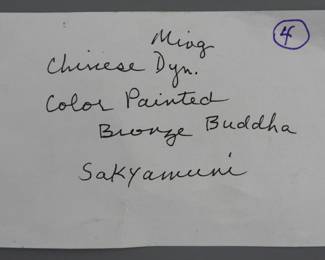 Ming
4
Chinese Dyn.
Color Painted
Bronze Buddha
Sakyamuni